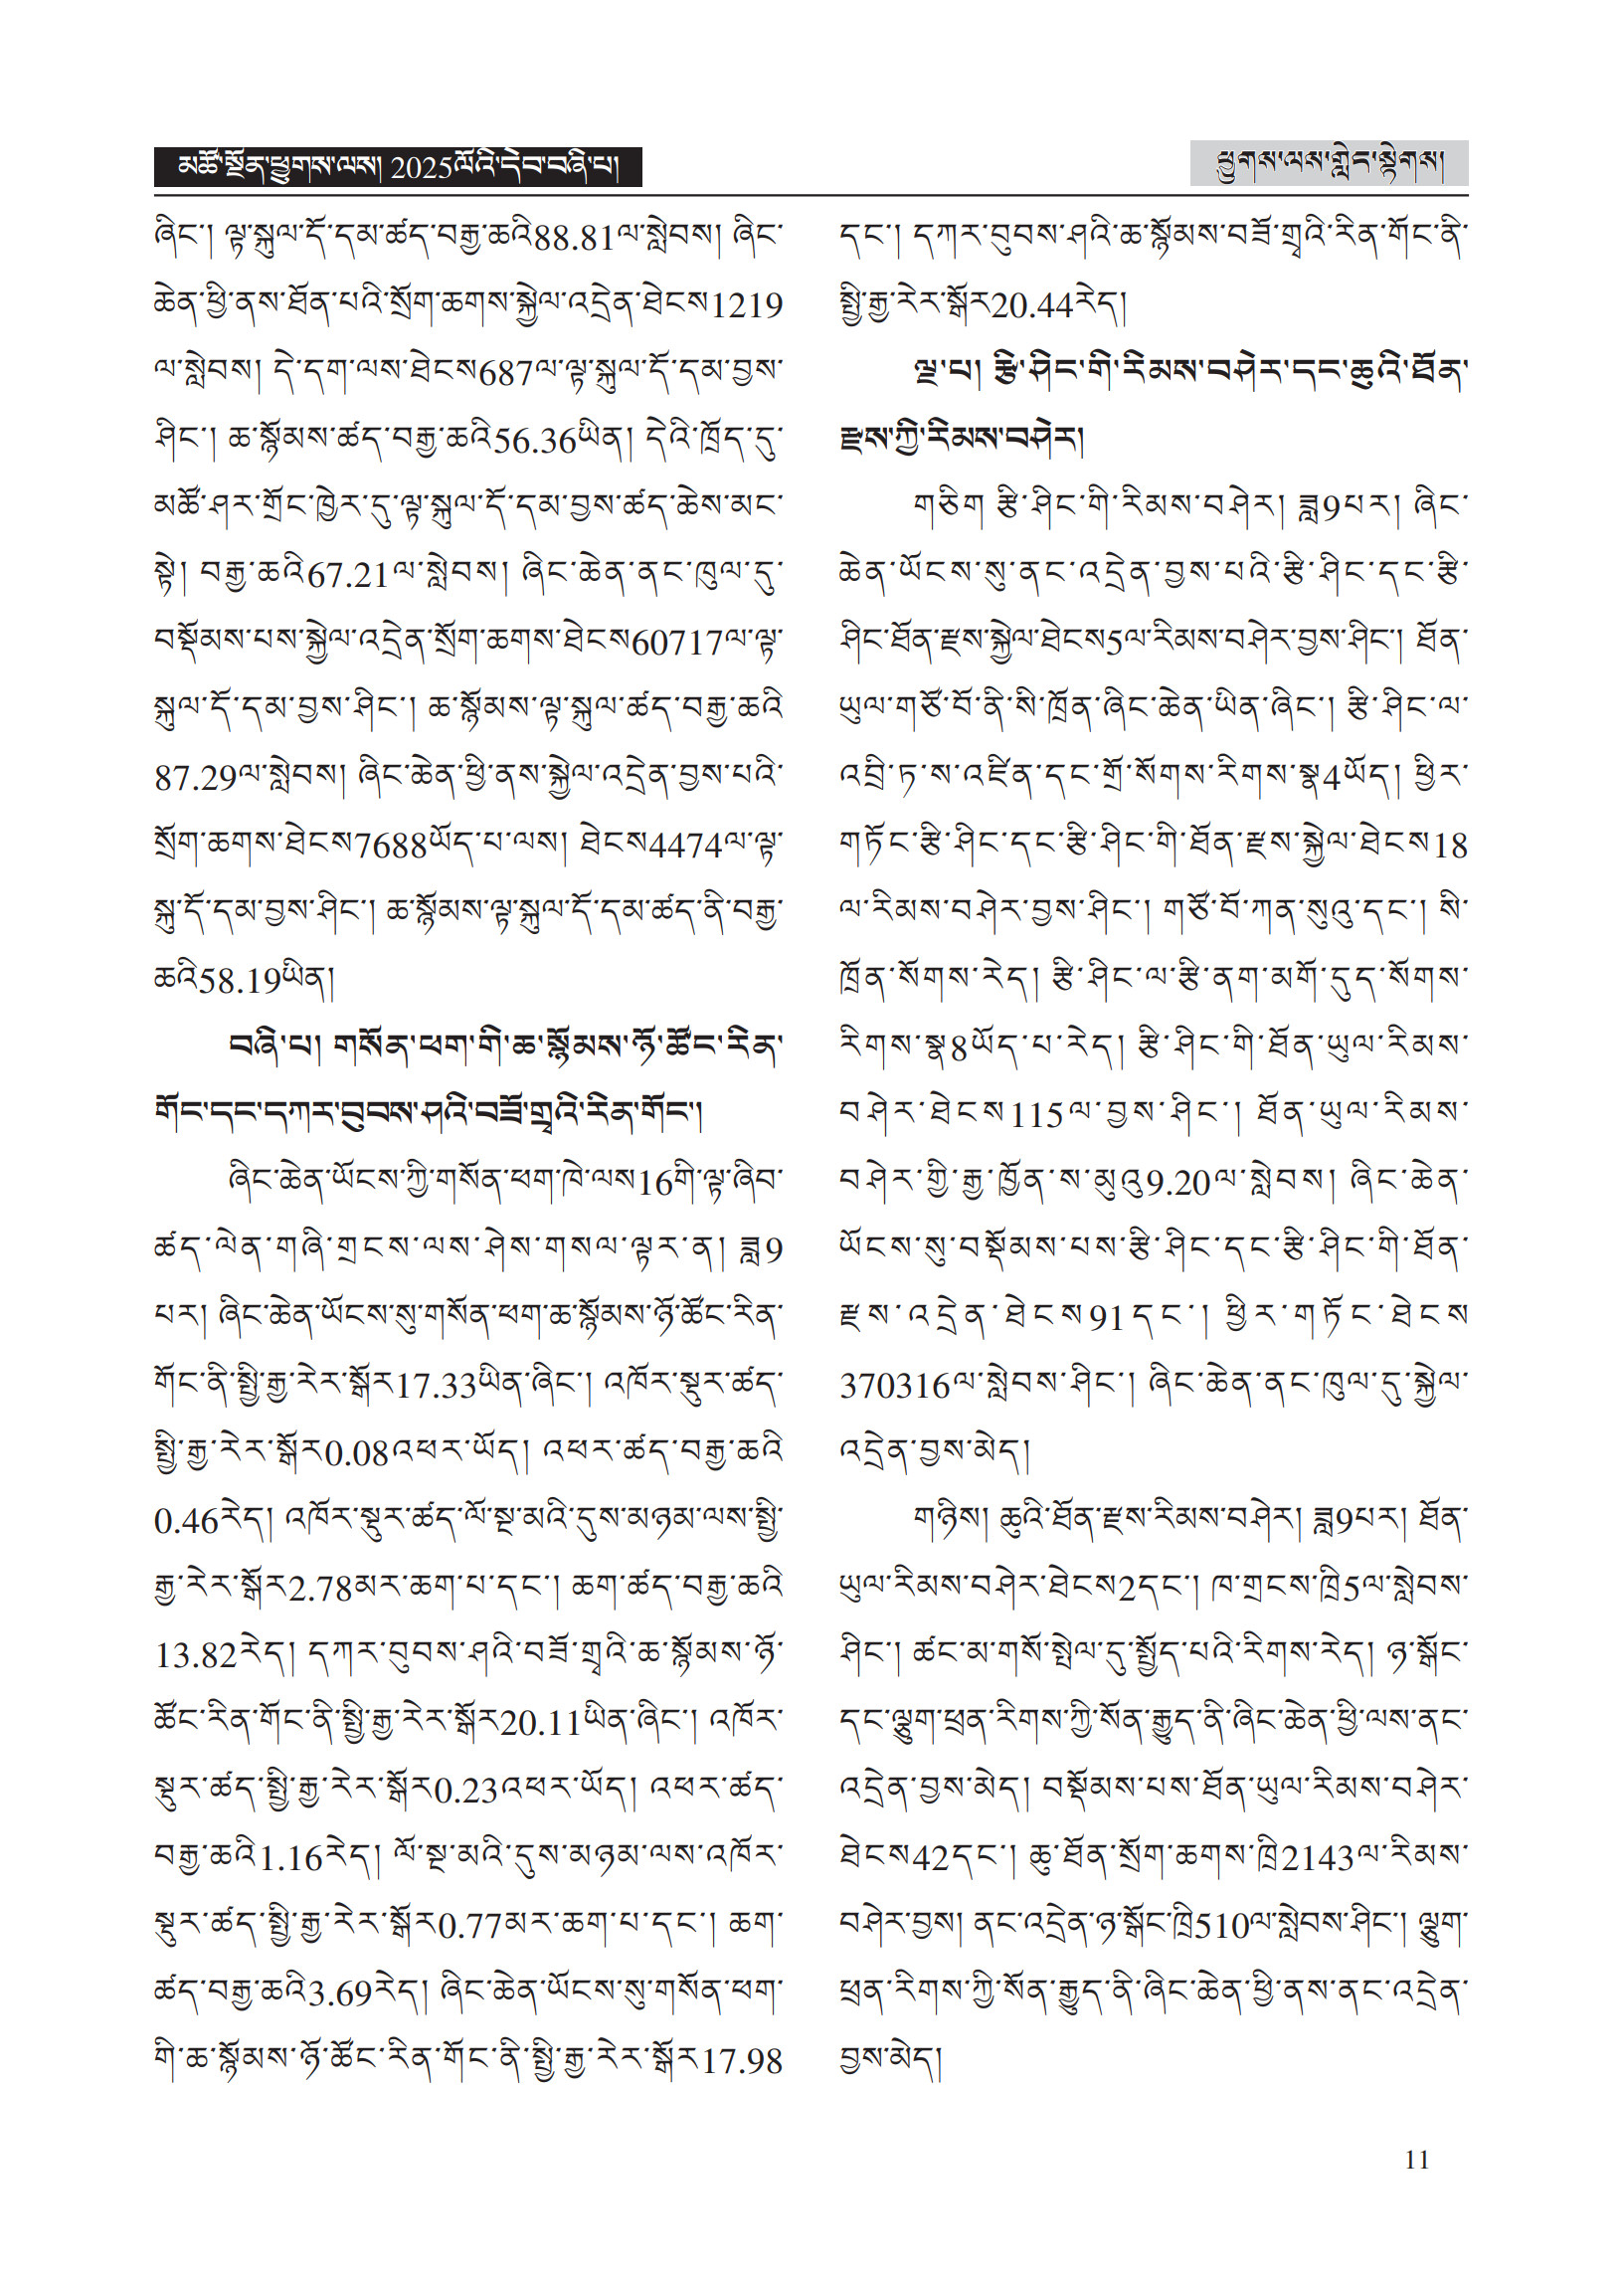 མཚོ་སྔོན་ཕྱུགས་ལས། 2025ལོའི་དེབ་བཞི་པ།
ཕྱུགས་ལས་གླེང་སྟེགས།
ཞིང་། ལྟ་སྐུལ་དོ་དམ་ཚད་བརྒྱ་ཆའི88.81ལ་སླེབས། ཞིང་
ཆེན་ཕྱི་ནས་ཐོན་པའི་སྲོག་ཆགས་སྐྱེལ་འདྲེན་ཐེངས1219
ལ་སླེབས། དེ་དག་ལས་ཐེངས687ལ་ལྟ་སྐུལ་དོ་དམ་བྱས་
ཤིང་། ཆ་སྙོམས་ཚད་བརྒྱ་ཆའི56.36ཡིན། དེའི་ཁྲོད་དུ་
མཚོ་ཤར་གྲོང་ཁྱེར་དུ་ལྟ་སྐུལ་དོ་དམ་བྱས་ཚད་ཆེས་མང་
སྟེ། བརྒྱ་ཆའི67.21ལ་སླེབས། ཞིང་ཆེན་ནང་ཁུལ་དུ་
བསྡོམས་པས་སྐྱེལ་འདྲེན་སྲོག་ཆགས་ཐེངས60717ལ་ལྟ་
སྐུལ་དོ་དམ་བྱས་ཤིང་། ཆ་སྙོམས་ལྟ་སྐུལ་ཚད་བརྒྱ་ཆའི
87.29ལ་སླེབས། ཞིང་ཆེན་ཕྱི་ནས་སྐྱེལ་འདྲེན་བྱས་པའི་
སྲོག་ཆགས་ཐེངས7688ཡོད་པ་ལས། ཐེངས4474ལ་ལྟ་
སྐུ་དོ་དམ་བྱས་ཤིང་། ཆ་སྙོམས་ལྟ་སྐུལ་དོ་དམ་ཚད་ནི་བརྒྱ་
ཆའི58.19ཡིན།
བཞི་པ། གསོན་ཕག་གི་ཆ་སྙོམས་ཉོ་ཚོང་རིན་
གོང་དང་དཀར་བུབས་ཤའི་བཟོ་གྲྭའི་རིན་གོང་།
ཞིང་ཆེན་ཡོངས་ཀྱི་གསོན་ཕག་ཁེ་ལས16གི་ལྟ་ཞིབ་
ཚད་ལེན་གཞི་གྲངས་ལས་ཤེས་གསལ་ལྟར་ན། ཟླ9
པར། ཞིང་ཆེན་ཡོངས་སུ་གསོན་ཕག་ཆ་སྙོམས་ཉོ་ཚོང་རིན་
གོང་ནི་སྤྱི་རྒྱ་རེར་སྒོར17.33ཡིན་ཞིང་། འཁོར་སྡུར་ཚད་
སྤྱི་རྒྱ་རེར་སྒོར0.08འཕར་ཡོད། འཕར་ཚད་བརྒྱ་ཆའི
0.46རེད། འཁོར་སྡུར་ཚད་ལོ་སྔ་མའི་དུས་མཉམ་ལས་སྤྱི་
རྒྱ་རེར་སྒོར2.78མར་ཆག་པ་དང་། ཆག་ཚད་བརྒྱ་ཆའི
13.82རེད། དཀར་བུབས་ཤའི་བཟོ་གྲྭའི་ཆ་སྙོམས་ཉོ་
ཚོང་རིན་གོང་ནི་སྤྱི་རྒྱ་རེར་སྒོར20.11ཡིན་ཞིང་། འཁོར་
སྡུར་ཚད་སྤྱི་རྒྱ་རེར་སྒོར0.23འཕར་ཡོད། འཕར་ཚད་
བརྒྱ་ཆའི1.16རེད། ལོ་སྔ་མའི་དུས་མཉམ་ལས་འཁོར་
སྡུར་ཚད་སྤྱི་རྒྱ་རེར་སྒོར0.77མར་ཆག་པ་དང་། ཆག་
ཚད་བརྒྱ་ཆའི3.69རེད། ཞིང་ཆེན་ཡོངས་སུ་གསོན་ཕག་
གི་ཆ་སྙོམས་ཉོ་ཚོང་རིན་གོང་ནི་སྤྱི་རྒྱ་རེར་སྒོར17.98
དང་། དཀར་བུབས་ཤའི་ཆ་སྙོམས་བཟོ་གྲྭའི་རིན་གོང་ནི་
སྤྱི་རྒྱ་རེར་སྒོར20.44རེད།
ལྔ་པ། རྩི་ཤིང་གི་རིམས་བཤེར་དང་ཆུའི་ཐོན་
རྫས་ཀྱི་རིམས་བཤེར།
གཅིག རྩི་ཤིང་གི་རིམས་བཤེར། ཟླ9པར། ཞིང་
ཆེན་ཡོངས་སུ་ནང་འདྲེན་བྱས་པའི་རྩི་ཤིང་དང་རྩི་
ཤིང་ཐོན་རྫས་སྐྱེལ་ཐེངས5ལ་རིམས་བཤེར་བྱས་ཤིང་། ཐོན་
ཡུལ་གཙོ་བོ་ནི་སི་ཁྲོན་ཞིང་ཆེན་ཡིན་ཞིང་། རྩི་ཤིང་ལ་
འབྲི་ཏ་ས་འཛིན་དང་གྲོ་སོགས་རིགས་སྣ4ཡོད། ཕྱིར་
གཏོང་རྩི་ཤིང་དང་རྩི་ཤིང་གི་ཐོན་རྫས་སྐྱེལ་ཐེངས18
ལ་རིམས་བཤེར་བྱས་ཤིང་། གཙོ་བོ་ཀན་སུའུ་དང་། སི་
ཁྲོན་སོགས་རེད། རྩི་ཤིང་ལ་རྩི་ནག་མགོ་དུད་སོགས་
རིགས་སྣ8ཡོད་པ་རེད། རྩི་ཤིང་གི་ཐོན་ཡུལ་རིམས་
བཤེར་ཐེངས115ལ་བྱས་ཤིང་། ཐོན་ཡུལ་རིམས་
བཤེར་གྱི་རྒྱ་ཁྱོན་ས་མུའུ9.20ལ་སླེབས། ཞིང་ཆེན་
ཡོངས་སུ་བསྡོམས་པས་རྩི་ཤིང་དང་རྩི་ཤིང་གི་ཐོན་
རྫས་འདྲེན་ཐེངས91དང་། ཕྱིར་གཏོང་ཐེངས
370316ལ་སླེབས་ཤིང་། ཞིང་ཆེན་ནང་ཁུལ་དུ་སྐྱེལ་
འདྲེན་བྱས་མེད།
གཉིས། ཆུའི་ཐོན་རྫས་རིམས་བཤེར། ཟླ9པར། ཐོན་
ཡུལ་རིམས་བཤེར་ཐེངས2དང་། ཁ་གྲངས་ཁྲི5ལ་སླེབས་
ཤིང་། ཚང་མ་གསོ་སྤེལ་དུ་སྤྱོད་པའི་རིགས་རེད། ཉ་སྒོང་
དང་ལྕུག་ཕྲན་རིགས་ཀྱི་སོན་རྒྱུད་ནི་ཞིང་ཆེན་ཕྱི་ལས་ནང་
འདྲེན་བྱས་མེད། བསྡོམས་པས་ཐོན་ཡུལ་རིམས་བཤེར་
ཐེངས42དང་། ཆུ་ཐོན་སྲོག་ཆགས་ཁྲི2143ལ་རིམས་
བཤེར་བྱས། ནང་འདྲེན་ཉ་སྒོང་ཁྲི510ལ་སླེབས་ཤིང་། ལྕུག་
ཕྲན་རིགས་ཀྱི་སོན་རྒྱུད་ནི་ཞིང་ཆེན་ཕྱི་ནས་ནང་འདྲེན་
བྱས་མེད།
11